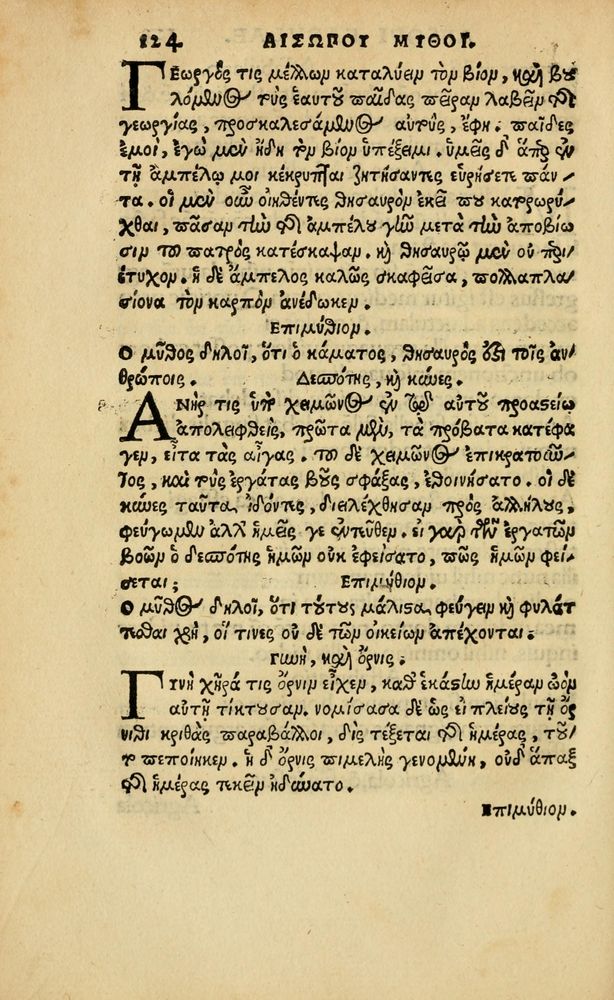 124 ΑΙΣΩΠΟΥ ΜΥΘΟΙ.
ΓΕωργός τις μέλλων καταλύειν τὸν βίον, καὶ βου
λόμενος τοὺς ἑαυτοῦ παῖδας πεῖραν λαβεῖν τῆς
γεωργίας, προσκαλεσάμενος αὐτοὺς, ἔφη. παῖδες
ἐμοὶ, ἐγὼ μὲν ἤδη τοῦ βίου ὑπέξειμι. ὑμεῖς δ' ἅπερ ἐν
τῇ ἀμπέλῳ μοι κέκρυπται ζητήσαντες εὑρήσετε πάν-
τα. οἱ μὲν οὖν οἰηθέντες θησαυρὸν ἐκεῖ που κατορωρύ-
χθαι, πᾶσαν τὴν τῆς ἀμπέλου γῆν μετὰ τὴν ἀποβίω-
σιν τοῦ πατρὸς κατέσκαψαν. καὶ θησαυρῷ μὲν οὐ περι-
έτυχον. ἡ δὲ ἄμπελος καλῶς σκαφεῖσα, πολλαπλα-
σίονα τὸν καρπὸν ἀνέδωκεν.
Ἐπιμύθιον.
Ο μῦθος δηλοῖ, ὅτι ὁ κάματος, θησαυρός ἐστι τοῖς ἀν-
θρώποις. Δεσπότης, καὶ κύνες.
ΑΝήρ τις ὑπὸ χειμῶνος ἐν τῷ αὐτοῦ προαστείῳ
ἀπολειφθεὶς, πρῶτα μὲν, τὰ πρόβατα κατέφα-
γεν, εἶτα τὰς αἶγας. τοῦ δὲ χειμῶνος ἐπικρατοῦν-
τος, καὶ τοὺς ἐργάτας βοῦς σφάξας, ἐθοινήσατο. οἱ δὲ
κύνες ταῦτα ἰδόντες, διελέχθησαν πρὸς ἀλλήλους,
φεύγωμεν ἀλλ' ἡμεῖς γε ἐντεῦθεν. εἰ γὰρ τῶν ἐργατῶν
βοῶν ὁ δεσπότης ἡμῶν οὐκ ἐφείσατο, πῶς ἡμῶν φεί-
σεται; Ἐπιμύθιον.
Ο μῦθος δηλοῖ, ὅτι τούτους μάλιστα φεύγειν καὶ φυλάτ
τεσθαι χρὴ, οἵ τινες οὐ δὲ τῶν οἰκείων ἀπέχονται.
Γυνὴ, καὶ ὄρνις.
ΓΥνὴ χήρα τις ὄρνιν εἶχεν, καθ' ἑκάστην ἡμέραν ὠὸν
αὐτῇ τίκτουσαν. νομίσασα δὲ ὡς εἰ πλείους τῇ ὄρ
νιθι κριθὰς παραβάλλοι, δὶς τέξεται τῆς ἡμέρας, τοῦ-
το πεποίηκεν. ἡ δ' ὄρνις πιμελὴς γενομένη, οὐδ' ἅπαξ
τῆς ἡμέρας τεκεῖν ἠδύνατο.
Ἐπιμύθιον.